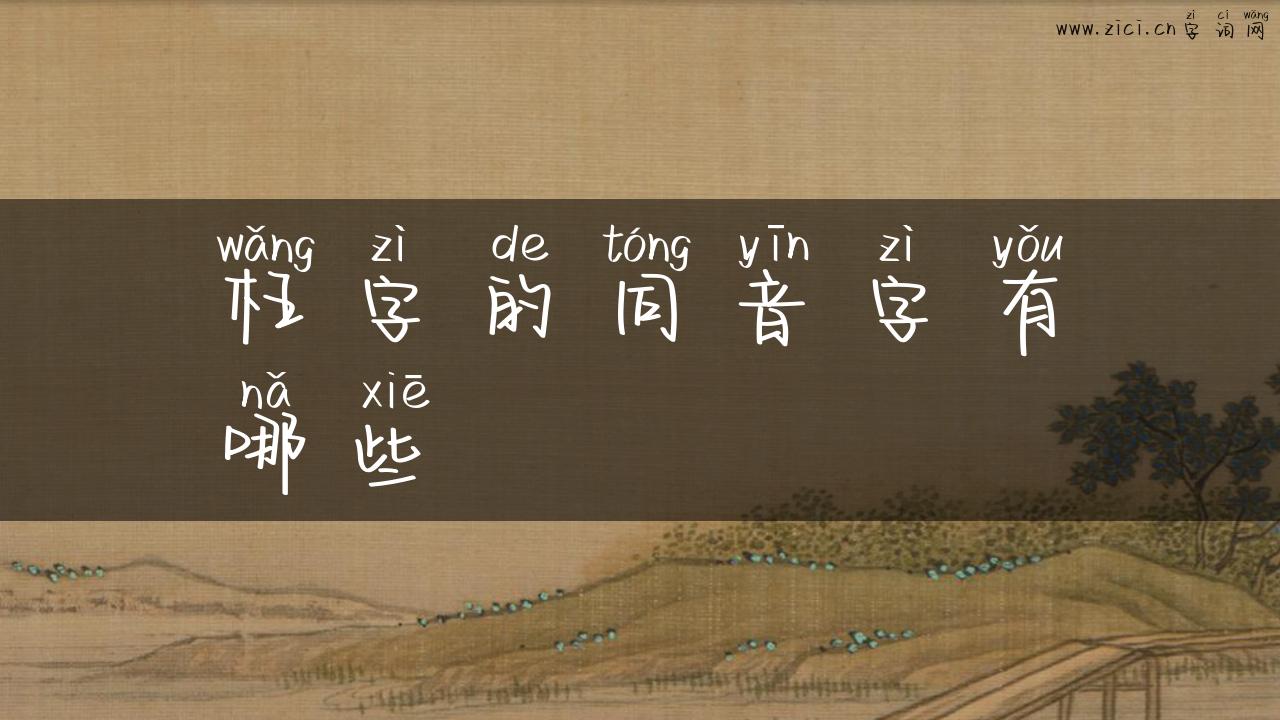 zì cí wǎng
www.zici.cn字词网
wǎng zì de tóng yīn zì yǒu
枉字的同音字有
nǎ xiē
哪些